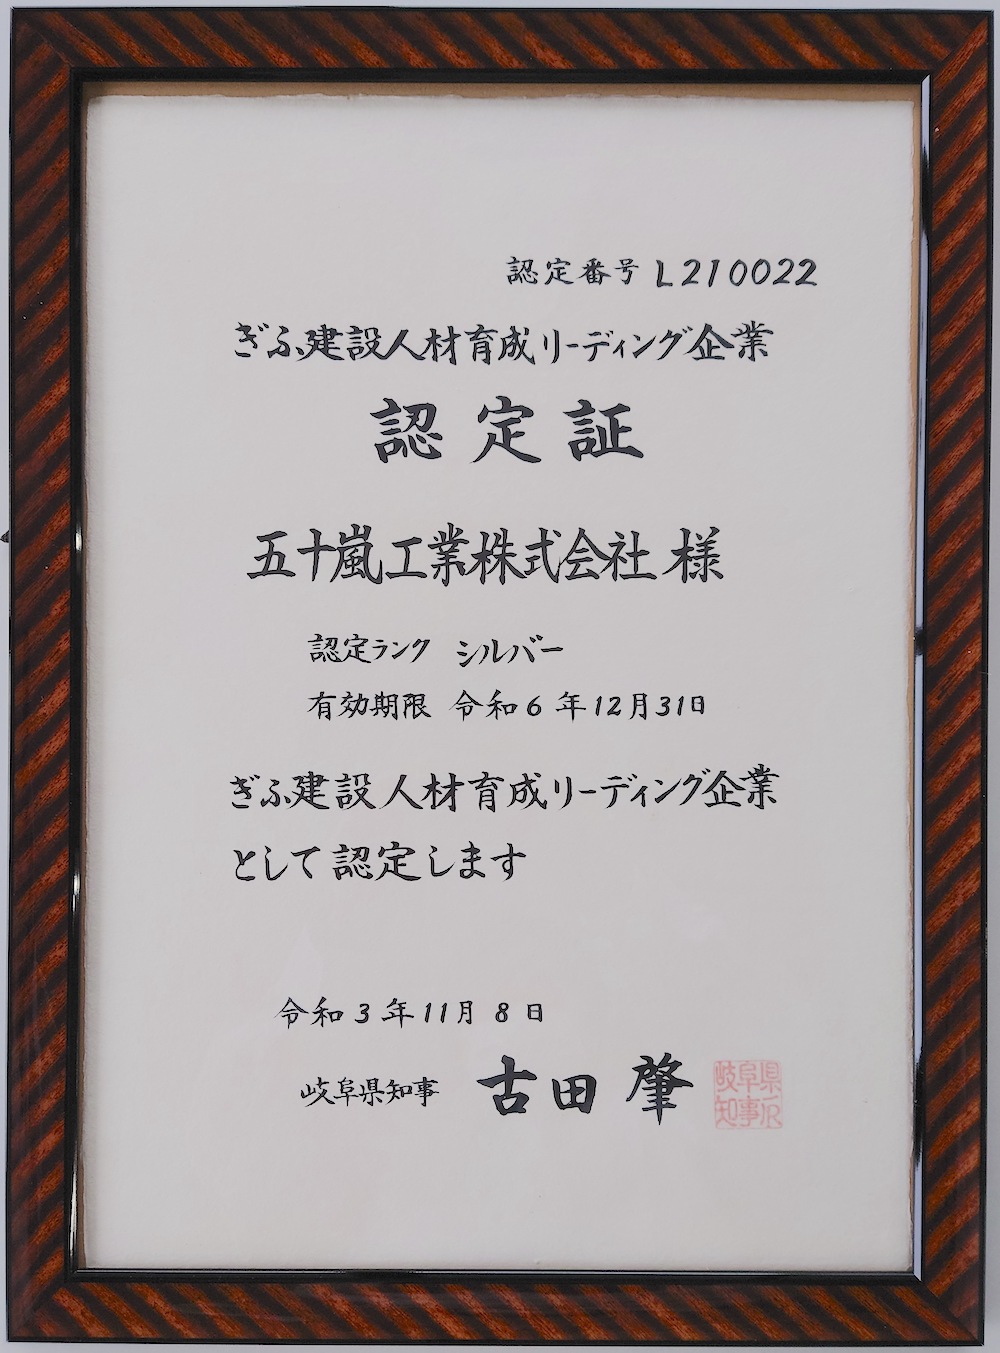 認定番号 L210022
ぎふ建設人材育成リーディング企業
認定証
五十嵐工業株式会社 様
認定ランク シルバー
有効期限 令和6年12月31日
ぎふ建設人材育成リーディング企業
として認定します
令和3年11月8日
岐阜県知事 古田 肇
岐阜県
知事印